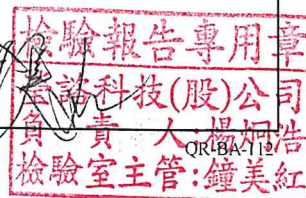 檢驗報告專用章
科技(股)公司
負責人:楊炯浩
QR-BA-112
檢驗室主管:鐘美紅